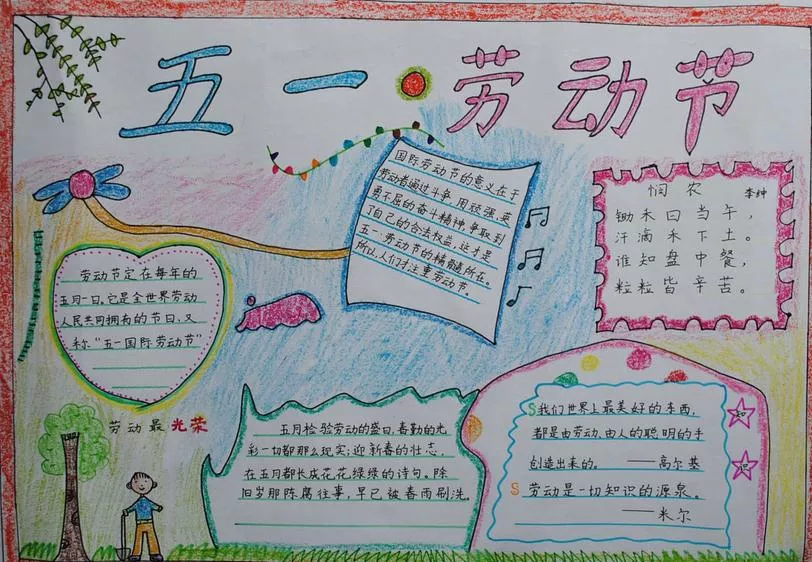 五一劳动节
国际劳动节的意义在于
劳动者通过斗争,用顽强、英
勇不屈的奋斗精神,争取到
了自己的合法权益,这才是
五一劳动节的精髓所在。
所以人们才注重劳动节。
悯农 李绅
锄禾日当午,
汗滴禾下土。
谁知盘中餐,
粒粒皆辛苦。
劳动节定在每年的
五月一日。它是全世界劳动
人民共同拥有的节日,又
称“五一国际劳动节”
劳动最光荣
五月检验劳动的盛日,春勤的光
彩一切都那么现实;迎新春的壮志,
在五月都长成花花绿绿的诗句。除
旧岁那陈腐往事,早已被春雨刷洗。
我们世界上最美好的东西,
都是由劳动、由人的聪明的手
创造出来的。——高尔基
劳动是一切知识的源泉。
——米尔